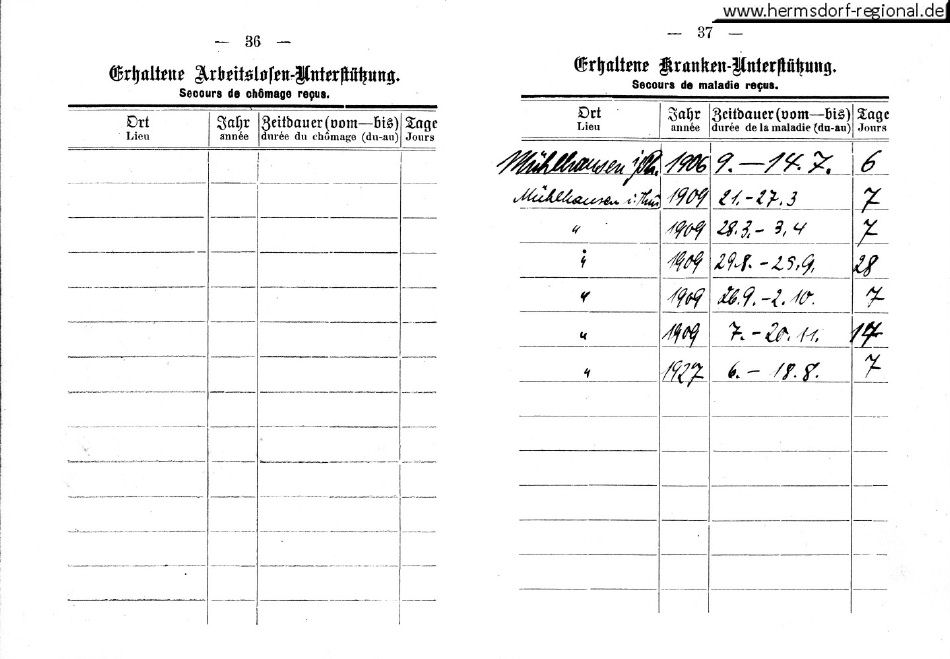 www.hermsdorf-regional.de
— 36 —
Erhaltene Arbeitslosen-Unterstützung.
Secours de chômage reçus.
Ort Jahr Zeitdauer (vom—bis) Tage
Lieu année durée du chômage (du-au) Jours
— 37 —
Erhaltene Kranken-Unterstützung.
Secours de maladie reçus.
Ort Jahr Zeitdauer (vom—bis) Tage
Lieu année durée de la maladie (du-au) Jours
Mühlhausen 1906 9. — 14. 7. 6
Mühlhausen i. Thür 1909 21. - 27. 3 7
" 1909 28.3. - 3. 4 7
" 1909 29.8. - 25.9. 28
" 1909 26.9. - 2. 10. 7
" 1909 7. - 20. 11.
" 1927 6. - 18. 8. 7